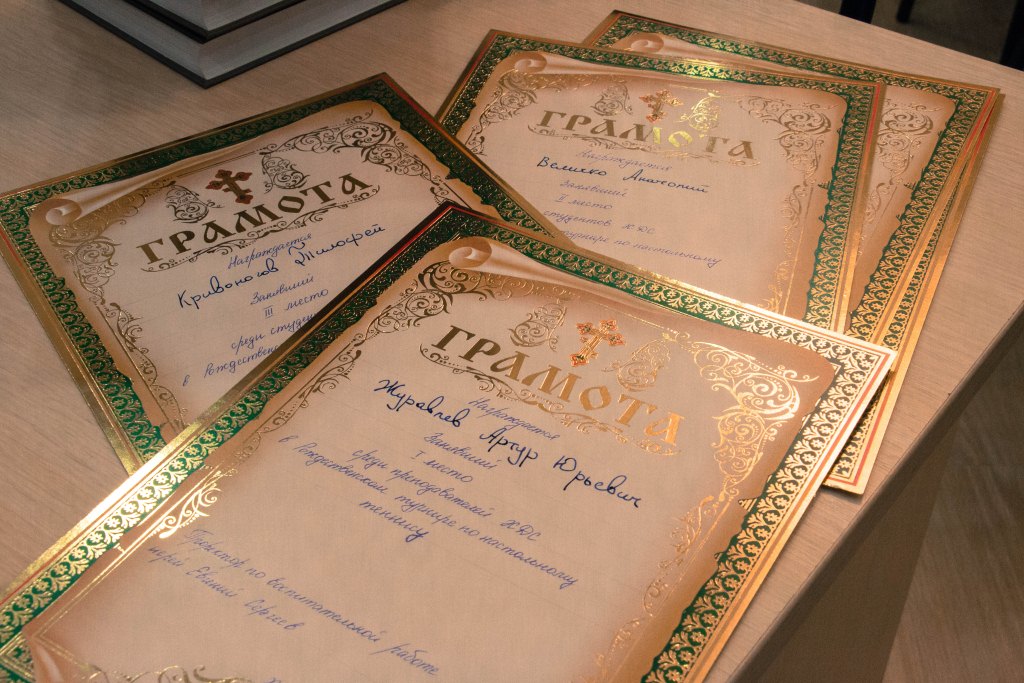 ГРАМОТА
Награждается
Кривоносов Тимофей
Занявший
III место
среди
в
ГРАМОТА
Награждается
Величко Анатолий
Занявший
II место
студентов ХДС
турнире по настольному
ГРАМОТА
Награждается
Журавлев Артур Юрьевич
Занявший
I место
среди преподавателей ХДС
в Рождественском турнире по настольному
теннису
Проректор по воспитательной работе
иерей Евгений Сергеев